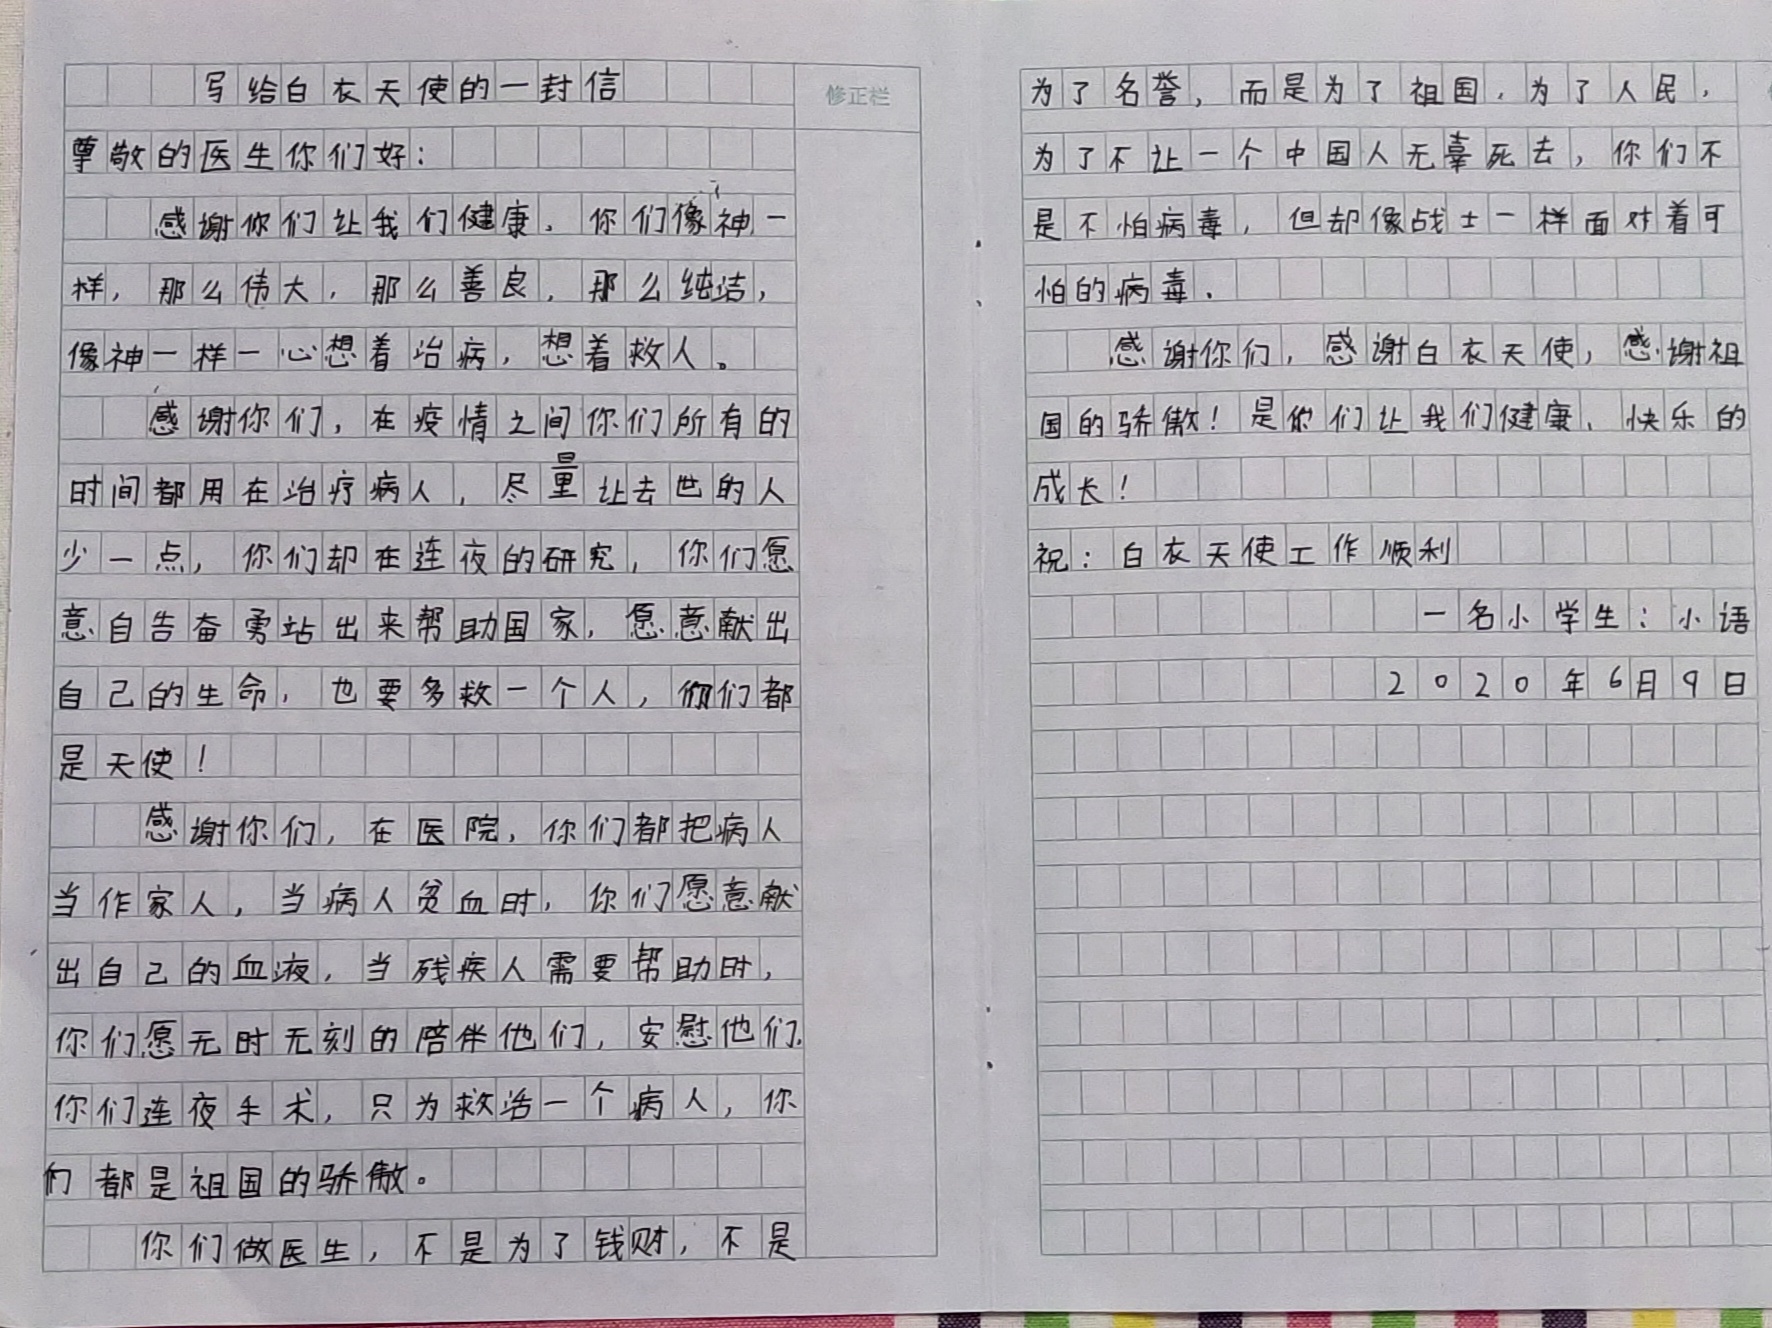 写给白衣天使的一封信
修正栏
尊敬的医生你们好：
感谢你们让我们健康，你们像神一
样，那么伟大，那么善良，那么纯洁，
像神一样一心想着治病，想着救人。
感谢你们，在疫情之间你们所有的
时间都用在治疗病人，尽量让去世的人
少一点，你们却在连夜的研究，你们愿
意自告奋勇站出来帮助国家，愿意献出
自己的生命，也要多救一个人，你们都
是天使！
感谢你们，在医院，你们都把病人
当作家人，当病人贫血时，你们愿意献
出自己的血液，当残疾人需要帮助时，
你们愿无时无刻的陪伴他们，安慰他们，
你们连夜手术，只为救活一个病人，你
们都是祖国的骄傲。
你们做医生，不是为了钱财，不是
为了名誉，而是为了祖国，为了人民，
为了不让一个中国人无辜死去，你们不
是不怕病毒，但却像战士一样面对着可
怕的病毒.
感谢你们，感谢白衣天使，感谢祖
国的骄傲！是你们让我们健康、快乐的
成长！
祝：白衣天使工作顺利
一名小学生：小语
2020年6月9日